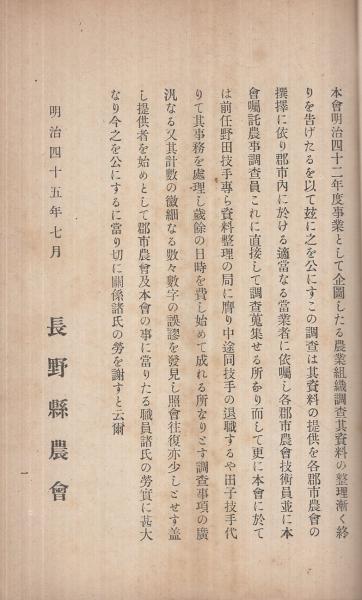 本會明治四十二年度事業として企圖したる農業組織調査其資料の整理漸く終
りを告げたるを以て玆に之を公にすこの調査は其資料の提供を各郡市農會の
撰擇に依り郡市內に於ける適當なる當業者に依囑し各郡市農會技術員並に本
會囑託農事調査員これに直接して調査蒐集せる所なり而して更に本會に於て
は前任野田技手專ら資料整理の局に膺り中途同技手の退職するや田子技手代
りて其事務を處理し歲餘の日時を費し始めて成れる所なりとす調査事項の廣
汎なる又其計數の微細なる數々數字の誤謬を發見し照會往復亦少しとせす蓋
し提供者を始めとして郡市農會及本會の事に當りたる職員諸氏の勞實に甚大
なり今之を公にするに當り切に關係諸氏の勞を謝すと云爾
明治四十五年七月
長野縣農會
一